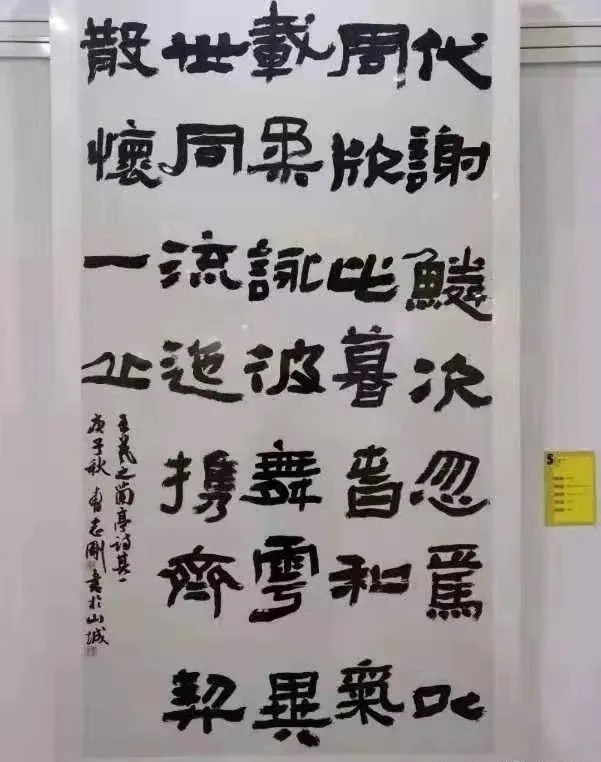 代謝鱗次忽焉以
周欣此暮春和氣
載柔詠彼舞雩異
世同流迤携齊契
散懷一丘
王羲之蘭亭詩其一
庚子秋 志剛書於山城
S